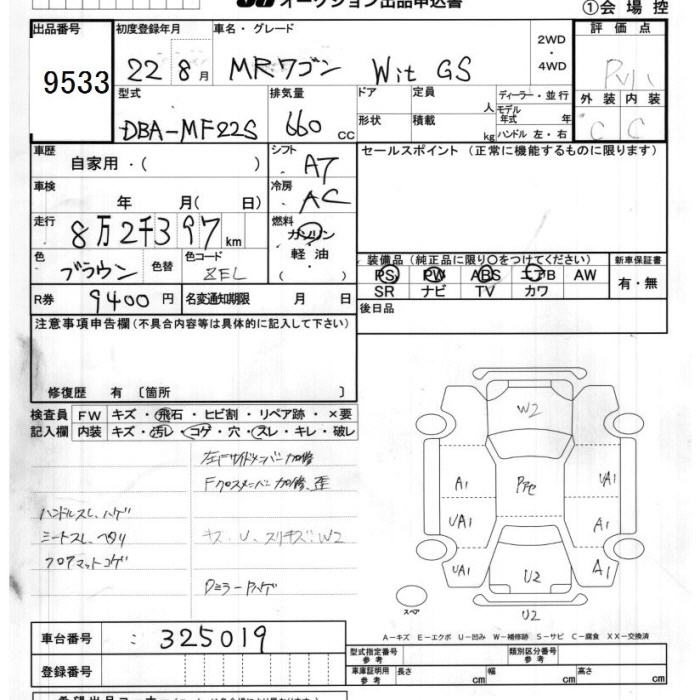 オークション出品申込書
①会場控
出品番号 初度登録年月 車名・グレード 評価点
9533 22 8月 MRワゴン Wit GS 2WD・4WD
外装 内装
C C
型式 排気量 ドア 定員 人 ディーラー・並行
DBA-MF22S 660 CC 形状 積載 kg モデル年式 年
ハンドル 左・右
車歴 シフト セールスポイント(正常に機能するものに限ります)
自家用・( ) AT
車検 冷房
年 月( 日) AC
走行 燃料
8万2千397 km ガソリン
軽油
( )
色 色替 色コード 装備品(純正品に限り○をつけてください) 新車保証書
ブラウン ZFL PS PW ABS エアB AW 有・無
SR ナビ TV カワ
R券 9400円 名変通知期限 月 日 後日品
注意事項申告欄(不具合内容等は具体的に記入して下さい)
修復歴 有〔箇所 〕
検査員 FW キズ・飛石・ヒビ割・リペア跡・×要
記入欄 内装 キズ・汚レ・コゲ・穴・スレ・キレ・破レ
左Fサイドメンバー加修
Fクロスメンバー加修、歪
ハンドルスレ、ハゲ
シートスレ、ヘタリ
フロアマットコゲ
キズ・U、スリキズ・W2
Dミラー Pハゲ
W2
A1 Ppe UA1
UA1 A1
UA1 U2 A1
スペア
U2
A-キズ E-エクボ U-凹み W-補修跡 S-サビ C-腐食 XX-交換済
車台番号 : 325019 型式指定番号 参考 類別区分番号 参考
登録番号 車庫証明用 参考 長さ cm 幅 cm 高さ cm